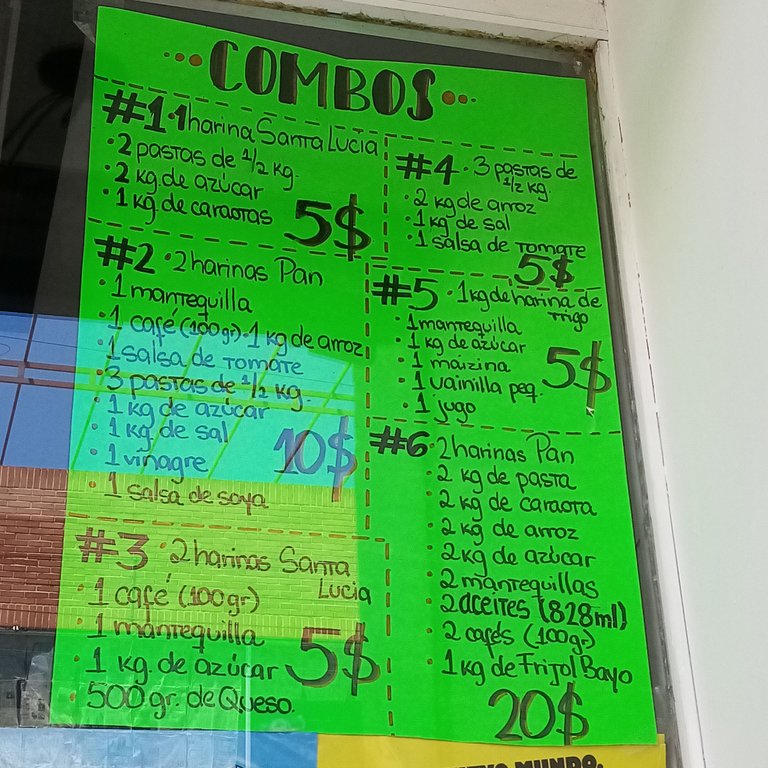 COMBOS
#1 • 1 harina Santa Lucia
• 2 pastas de 1/2 kg.
• 2 kg de azúcar
• 1 kg de caraotas
5$
#2 • 2 harinas Pan
• 1 mantequilla
• 1 café (100gr) • 1 kg de arroz
• 1 salsa de tomate
• 3 pastas de 1/2 kg.
• 1 kg de azúcar
• 1 kg de sal
• 1 vinagre
• 1 salsa de soya
10$
#3 • 2 harinas Santa
Lucia
• 1 café (100gr)
• 1 mantequilla
• 1 kg. de azúcar
• 500 gr. de Queso.
5$
#4 • 3 pastas de
1/2 kg.
• 2 kg de arroz
• 1 kg de sal
• 1 salsa de tomate
5$
#5 • 1 kg de harina de
trigo
• 1 mantequilla
• 1 kg de azúcar
• 1 maizina
• 1 vainilla peq.
• 1 jugo
5$
#6 • 2 harinas Pan
• 2 kg de pasta
• 2 kg de caraota
• 2 kg de arroz
• 2 kg de azúcar
• 2 mantequillas
• 2 aceites (828ml)
• 2 cafés (100gr)
• 1 kg de Frijol Bayo
20$
MUNDO.